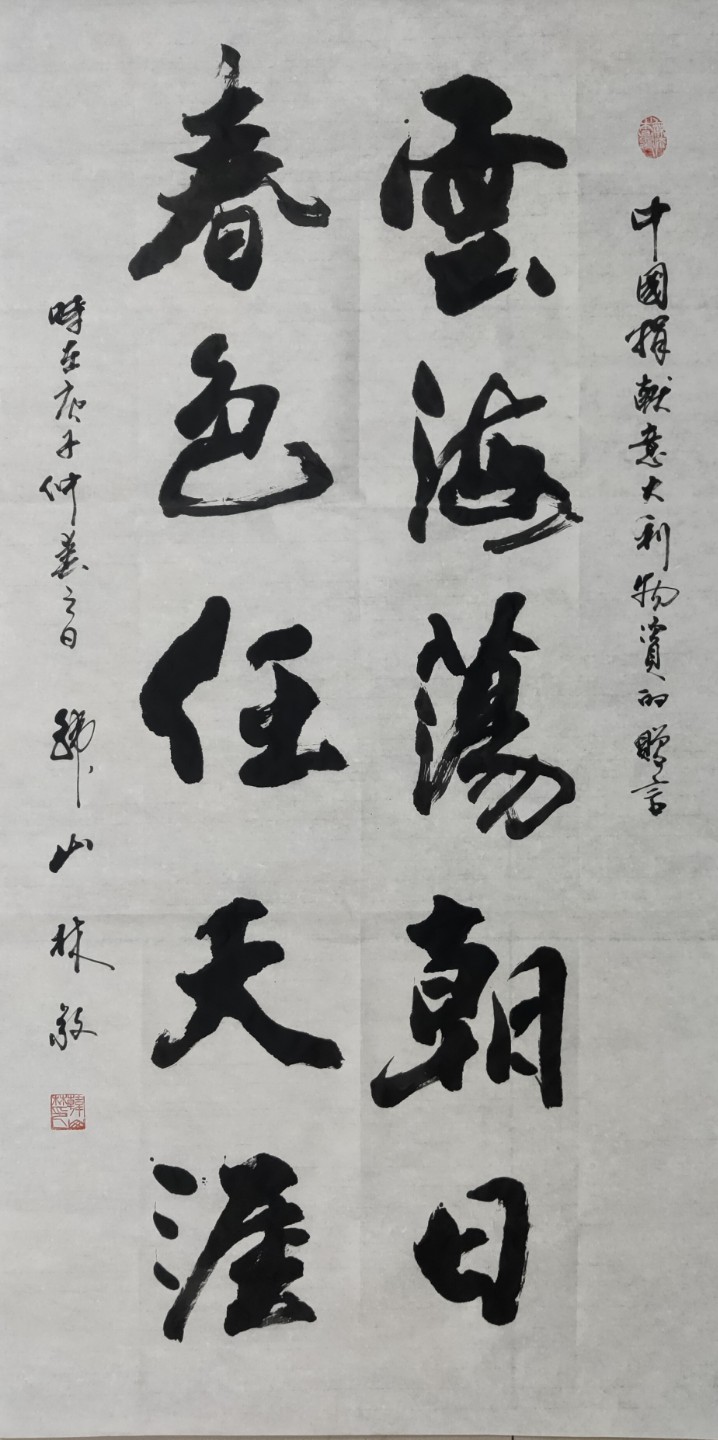 中國捐献意大利物資的贈言
雲海蕩朝日
春色任天涯
時在庚子仲春之日 山林